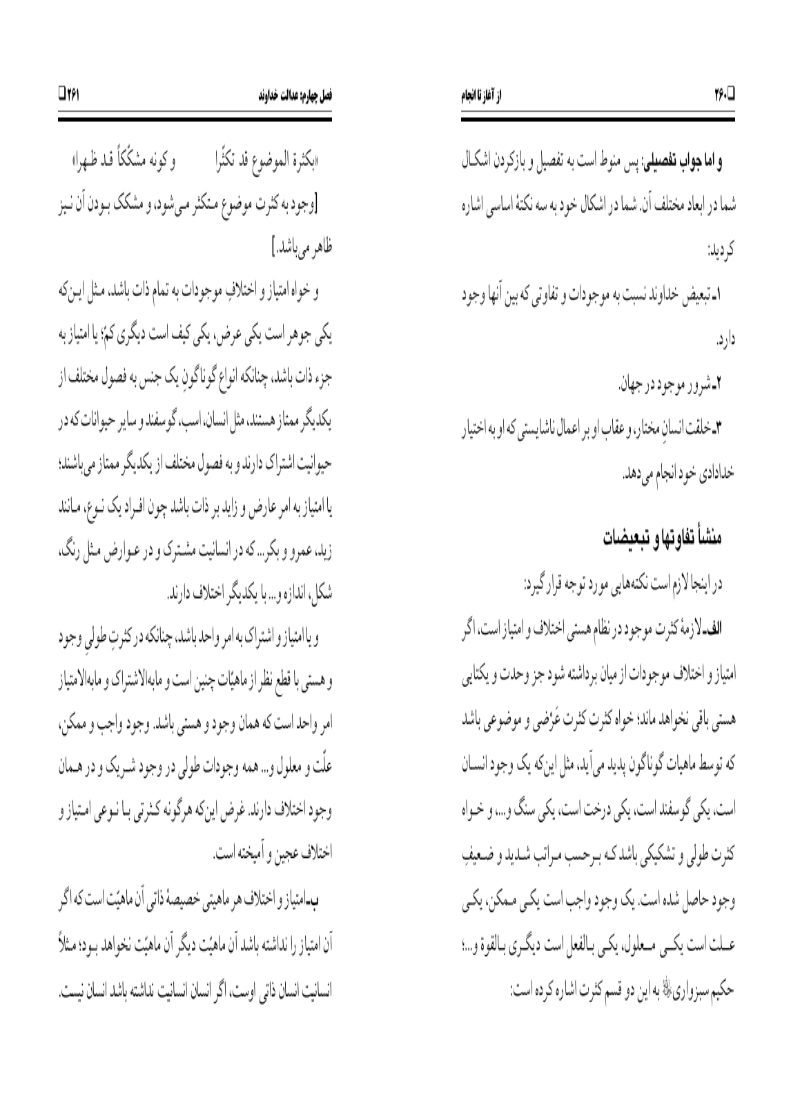 ❑ ۲۶۰
از آغاز تا انجام
و اما جواب تفصیلی: پس منوط است به تفصیل و بازکردن اشکال
شما در ابعاد مختلف آن. شما در اشکال خود به سه نکتهٔ اساسی اشاره
کردید:
۱ـ تبعیض خداوند نسبت به موجودات و تفاوتی که بین آنها وجود
دارد.
۲ـ شرور موجود در جهان.
۳ـ خلقت انسانِ مختار، و عقاب او بر اعمال ناشایستی که او به اختیار
خدادادی خود انجام می‌دهد.
منشأ تفاوتها و تبعیضات
در اینجا لازم است نکته‌هایی مورد توجه قرار گیرد:
الف‌ـ لازمهٔ کثرت موجود در نظام هستی اختلاف و امتیاز است، اگر
امتیاز و اختلاف موجودات از میان برداشته شود جز وحدت و یکتایی
هستی باقی نخواهد ماند؛ خواه کثرت کثرت عَرْضی و موضوعی باشد
که توسط ماهیات گوناگون پدید می‌آید، مثل این‌که یک وجود انسان
است، یکی گوسفند است، یکی درخت است، یکی سنگ و...، و خواه
کثرت طولی و تشکیکی باشد که برحسب مراتب شدید و ضعیفِ
وجود حاصل شده است. یک وجود واجب است یکی ممکن، یکی
علت است یکی معلول، یکی بالفعل است دیگری بالقوة و...؛
حکیم سبزواری به این دو قسم کثرت اشاره کرده است:
فصل چهارم: عدالت خداوند
۲۶۱ ❑
«بکثرة الموضوع قد تکثّرا و کونه مشکّکاً قد ظهرا»
[وجود به کثرت موضوع متکثر می‌شود، و مشکک بودن آن نیز
ظاهر می‌باشد.]
و خواه امتیاز و اختلافِ موجودات به تمام ذات باشد، مثل این‌که
یکی جوهر است یکی عرض، یکی کیف است دیگری کمّ؛ یا امتیاز به
جزء ذات باشد، چنانکه انواع گوناگونِ یک جنس به فصول مختلف از
یکدیگر ممتاز هستند، مثل انسان، اسب، گوسفند و سایر حیوانات که در
حیوانیت اشتراک دارند و به فصول مختلف از یکدیگر ممتاز می‌باشند؛
یا امتیاز به امر عارض و زاید بر ذات باشد چون افراد یک نوع، مانند
زید، عمرو و بکر... که در انسانیت مشترک و در عوارض مثل رنگ،
شکل، اندازه و... با یکدیگر اختلاف دارند.
و یا امتیاز و اشتراک به امر واحد باشد، چنانکه در کثرتِ طولیِ وجود
و هستی با قطع نظر از ماهیّات چنین است و مابه‌الاشتراک و مابه‌الامتیاز
امر واحد است که همان وجود و هستی باشد. وجود واجب و ممکن،
علّت و معلول و... همه وجودات طولی در وجود شریک و در همان
وجود اختلاف دارند. غرض این‌که هرگونه کثرتی با نوعی امتیاز و
اختلاف عجین و آمیخته است.
ب‌ـ امتیاز و اختلاف هر ماهیتی خصیصهٔ ذاتی آن ماهیّت است که اگر
آن امتیاز را نداشته باشد آن ماهیّت دیگر آن ماهیّت نخواهد بود؛ مثلاً
انسانیت انسان ذاتی اوست، اگر انسان انسانیت نداشته باشد انسان نیست.